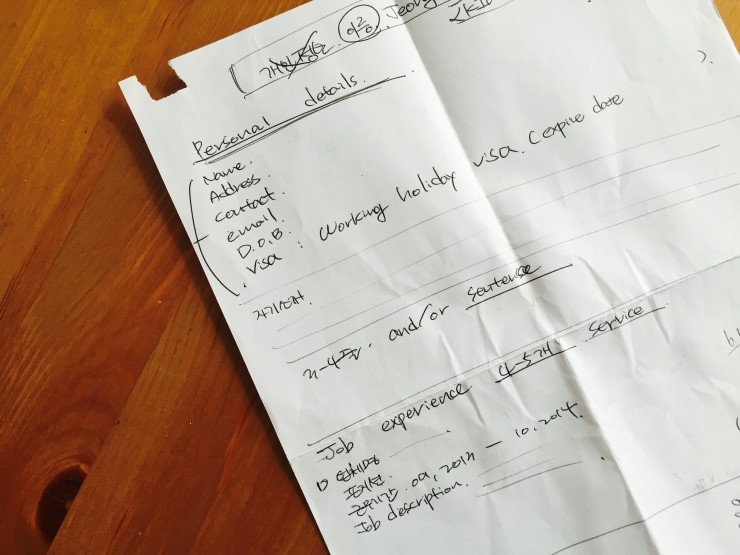 이름 Jeong
Personal details.
Name.
Address.
contact.
email.
D.O.B.
visa : Working holiday visa. (expire date ).
자기소개.
and/or sentence
Job experience. 4-5개 service
① 업체명
포지션.
근무기간. 09, 2013 — 10, 2014.
Job description.